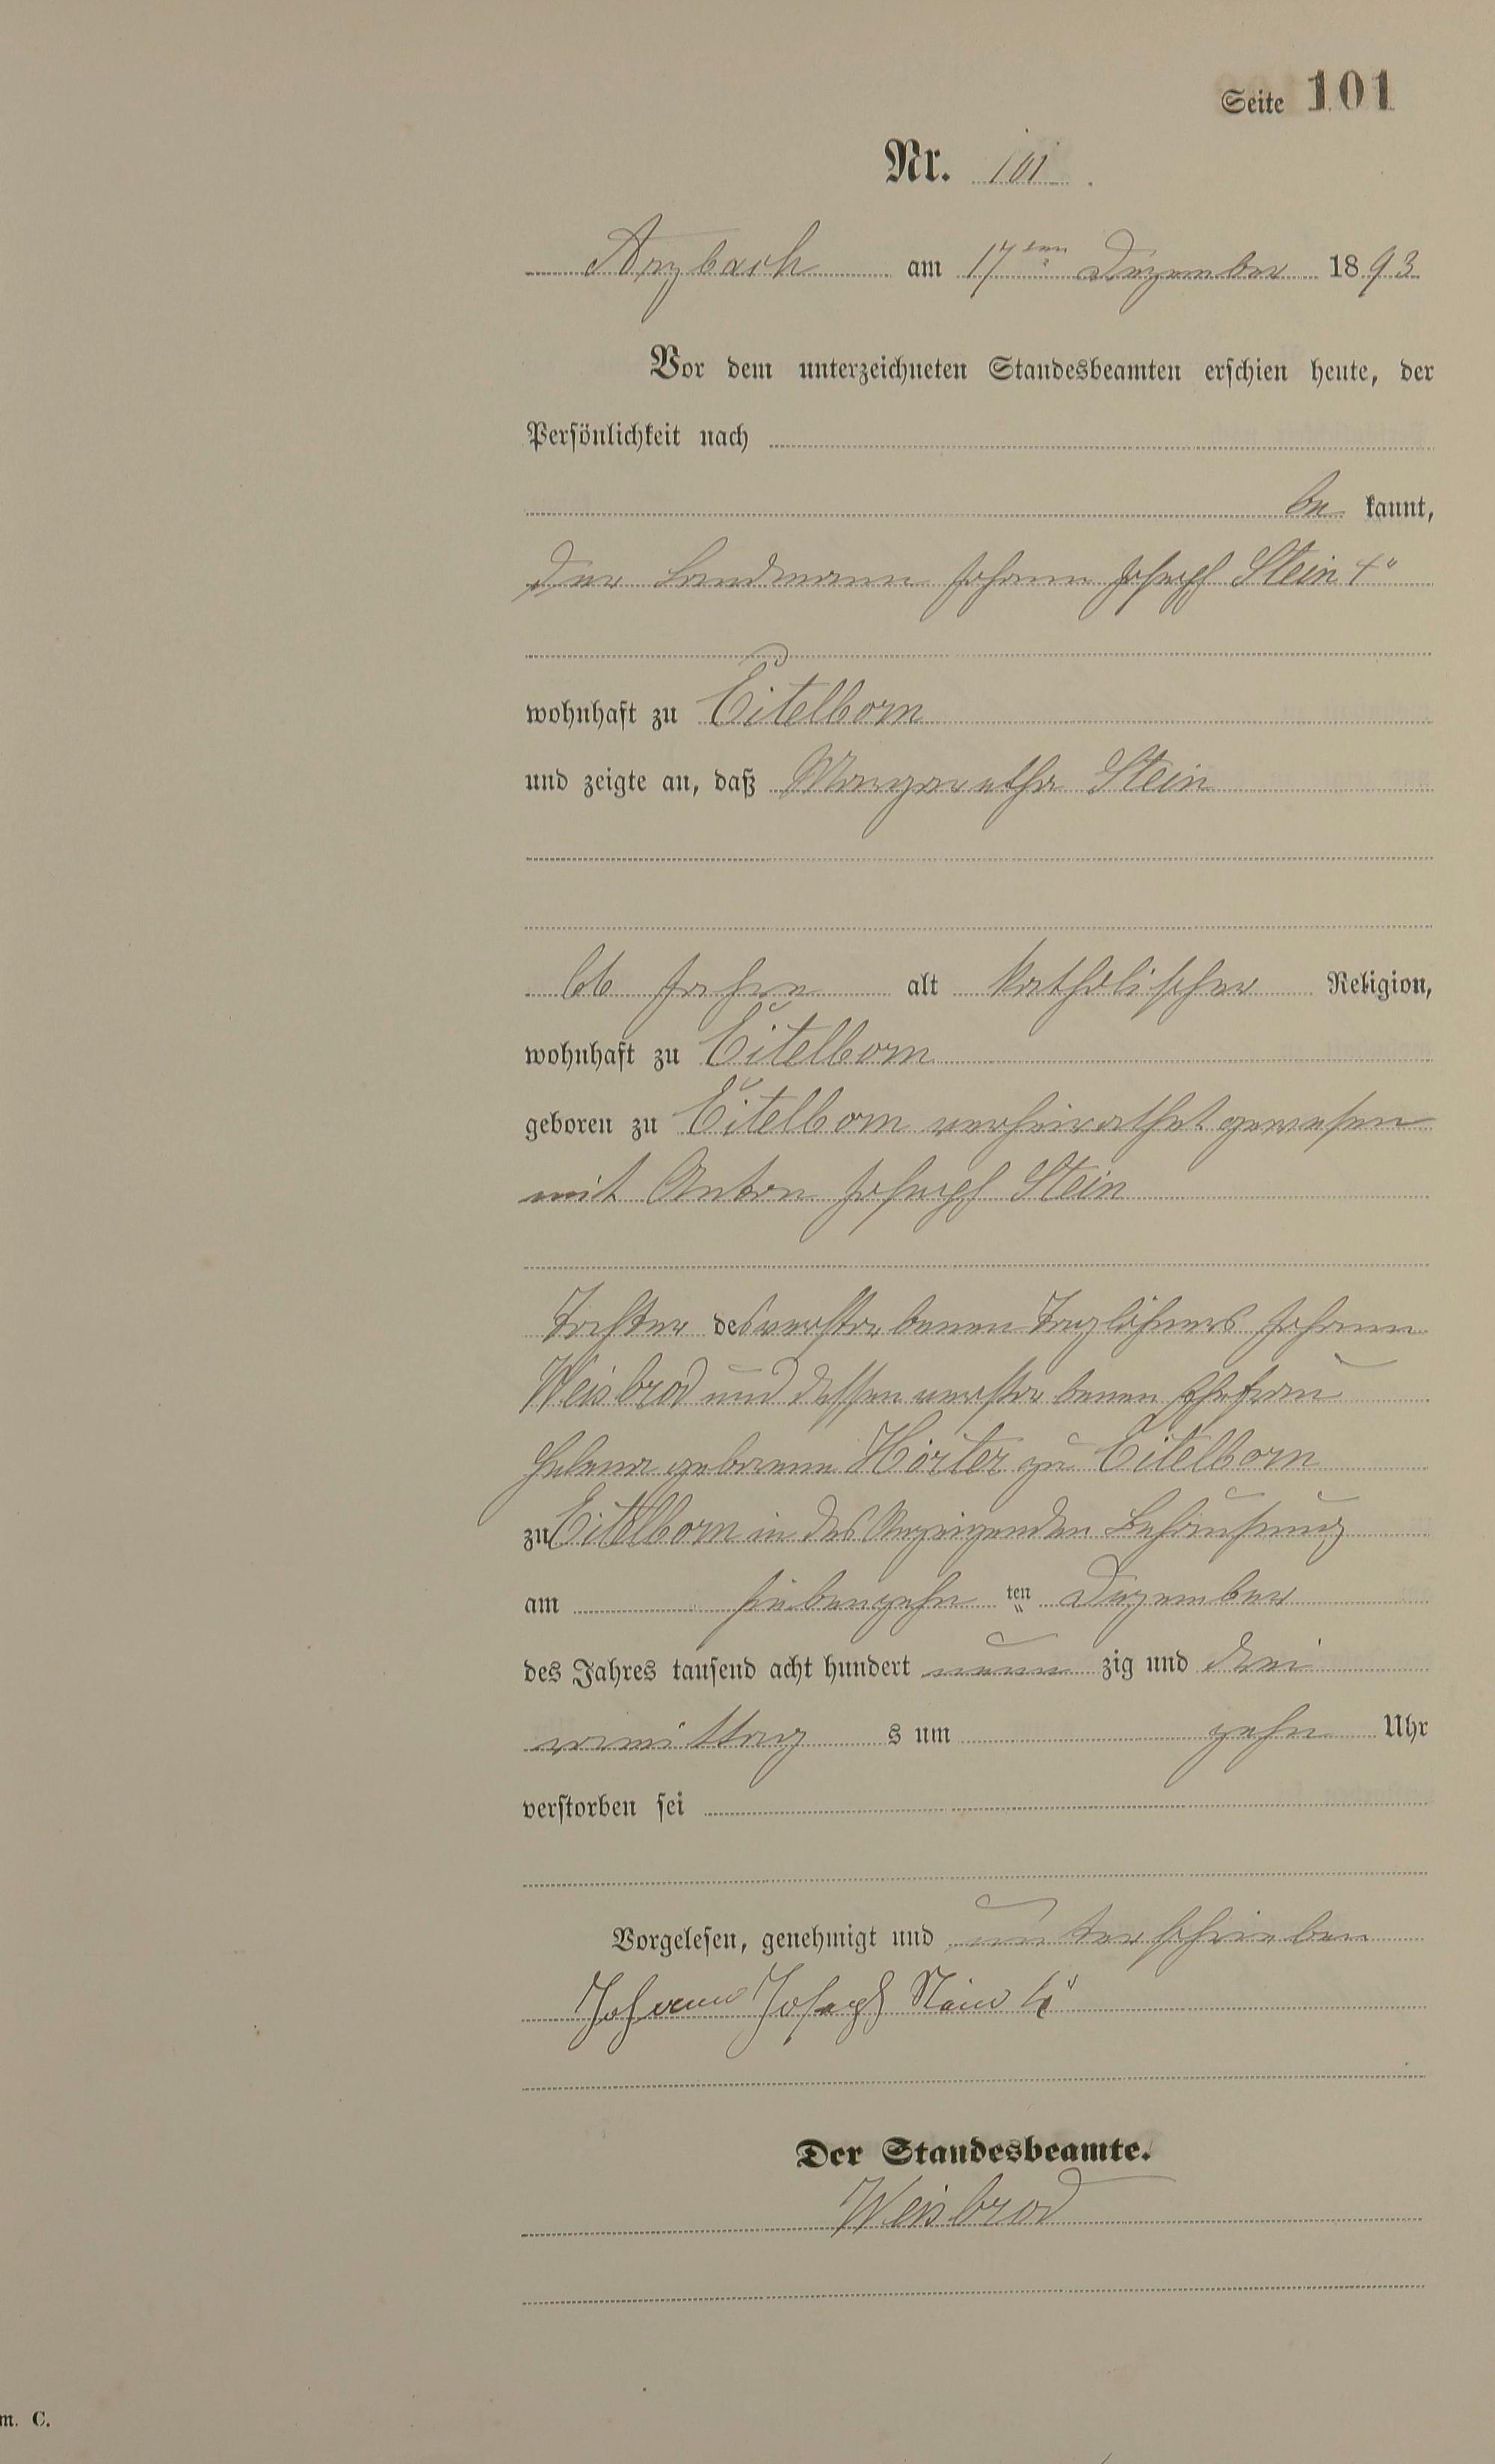 Seite 101
Nr. 101.
Arzbach am 17ten Dezember 1893
Vor dem unterzeichneten Standesbeamten erschien heute, der
Persönlichkeit nach
be kannt,
der Landmann Johann Joseph Stein 4"
wohnhaft zu Eitelborn
und zeigte an, daß Margaretha Stein
66 Jahre alt katholischer Religion,
wohnhaft zu Eitelborn
geboren zu Eitelborn verheirathet gewesen
mit Anton Joseph Stein
Tochter des verstorbenen Taglöhners Johann
Weisbrod und dessen verstorbenen Ehefrau
Helena geborene Hörter zu Eitelborn
zu Eitelborn in des Anzeigenden Behausung
am siebenzehn ten Dezember
des Jahres tausend acht hundert neun zig und drei
vormittag s um zehn Uhr
verstorben sei
Vorgelesen, genehmigt und unterschrieben
Johann Joseph Stein 4"
Der Standesbeamte.
Weisbrod
m. C.